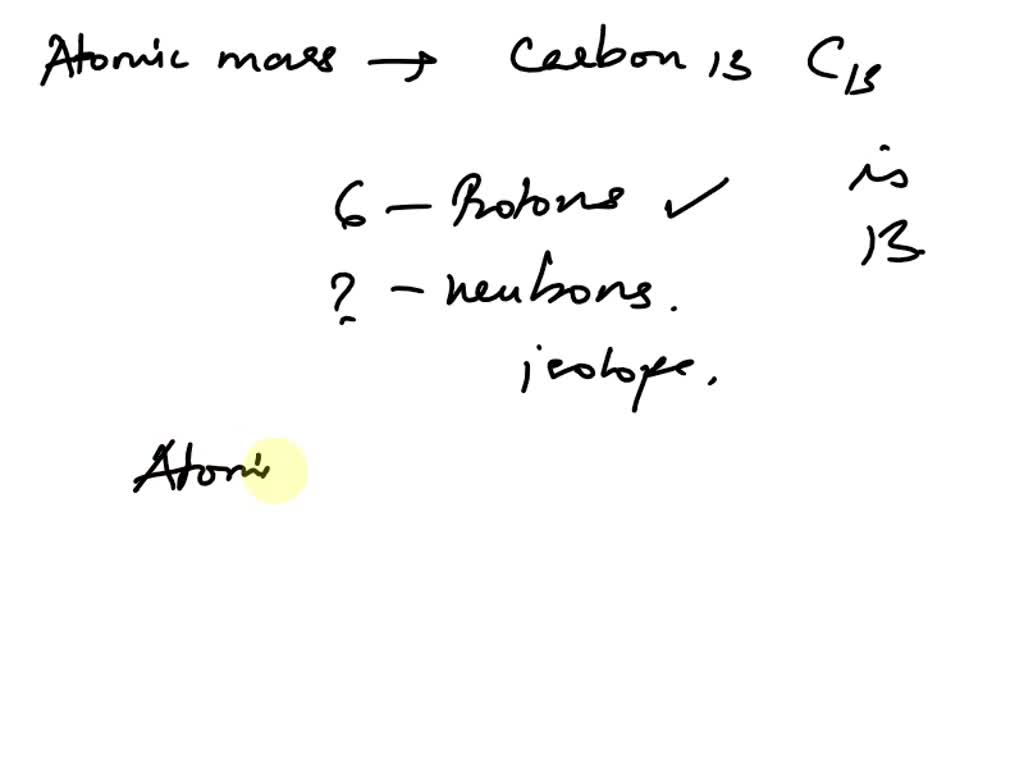 Atomic mass → Carbon 13 C13
is
6 – Protons ✓
13
? – neutrons.
isotope.
Atomi